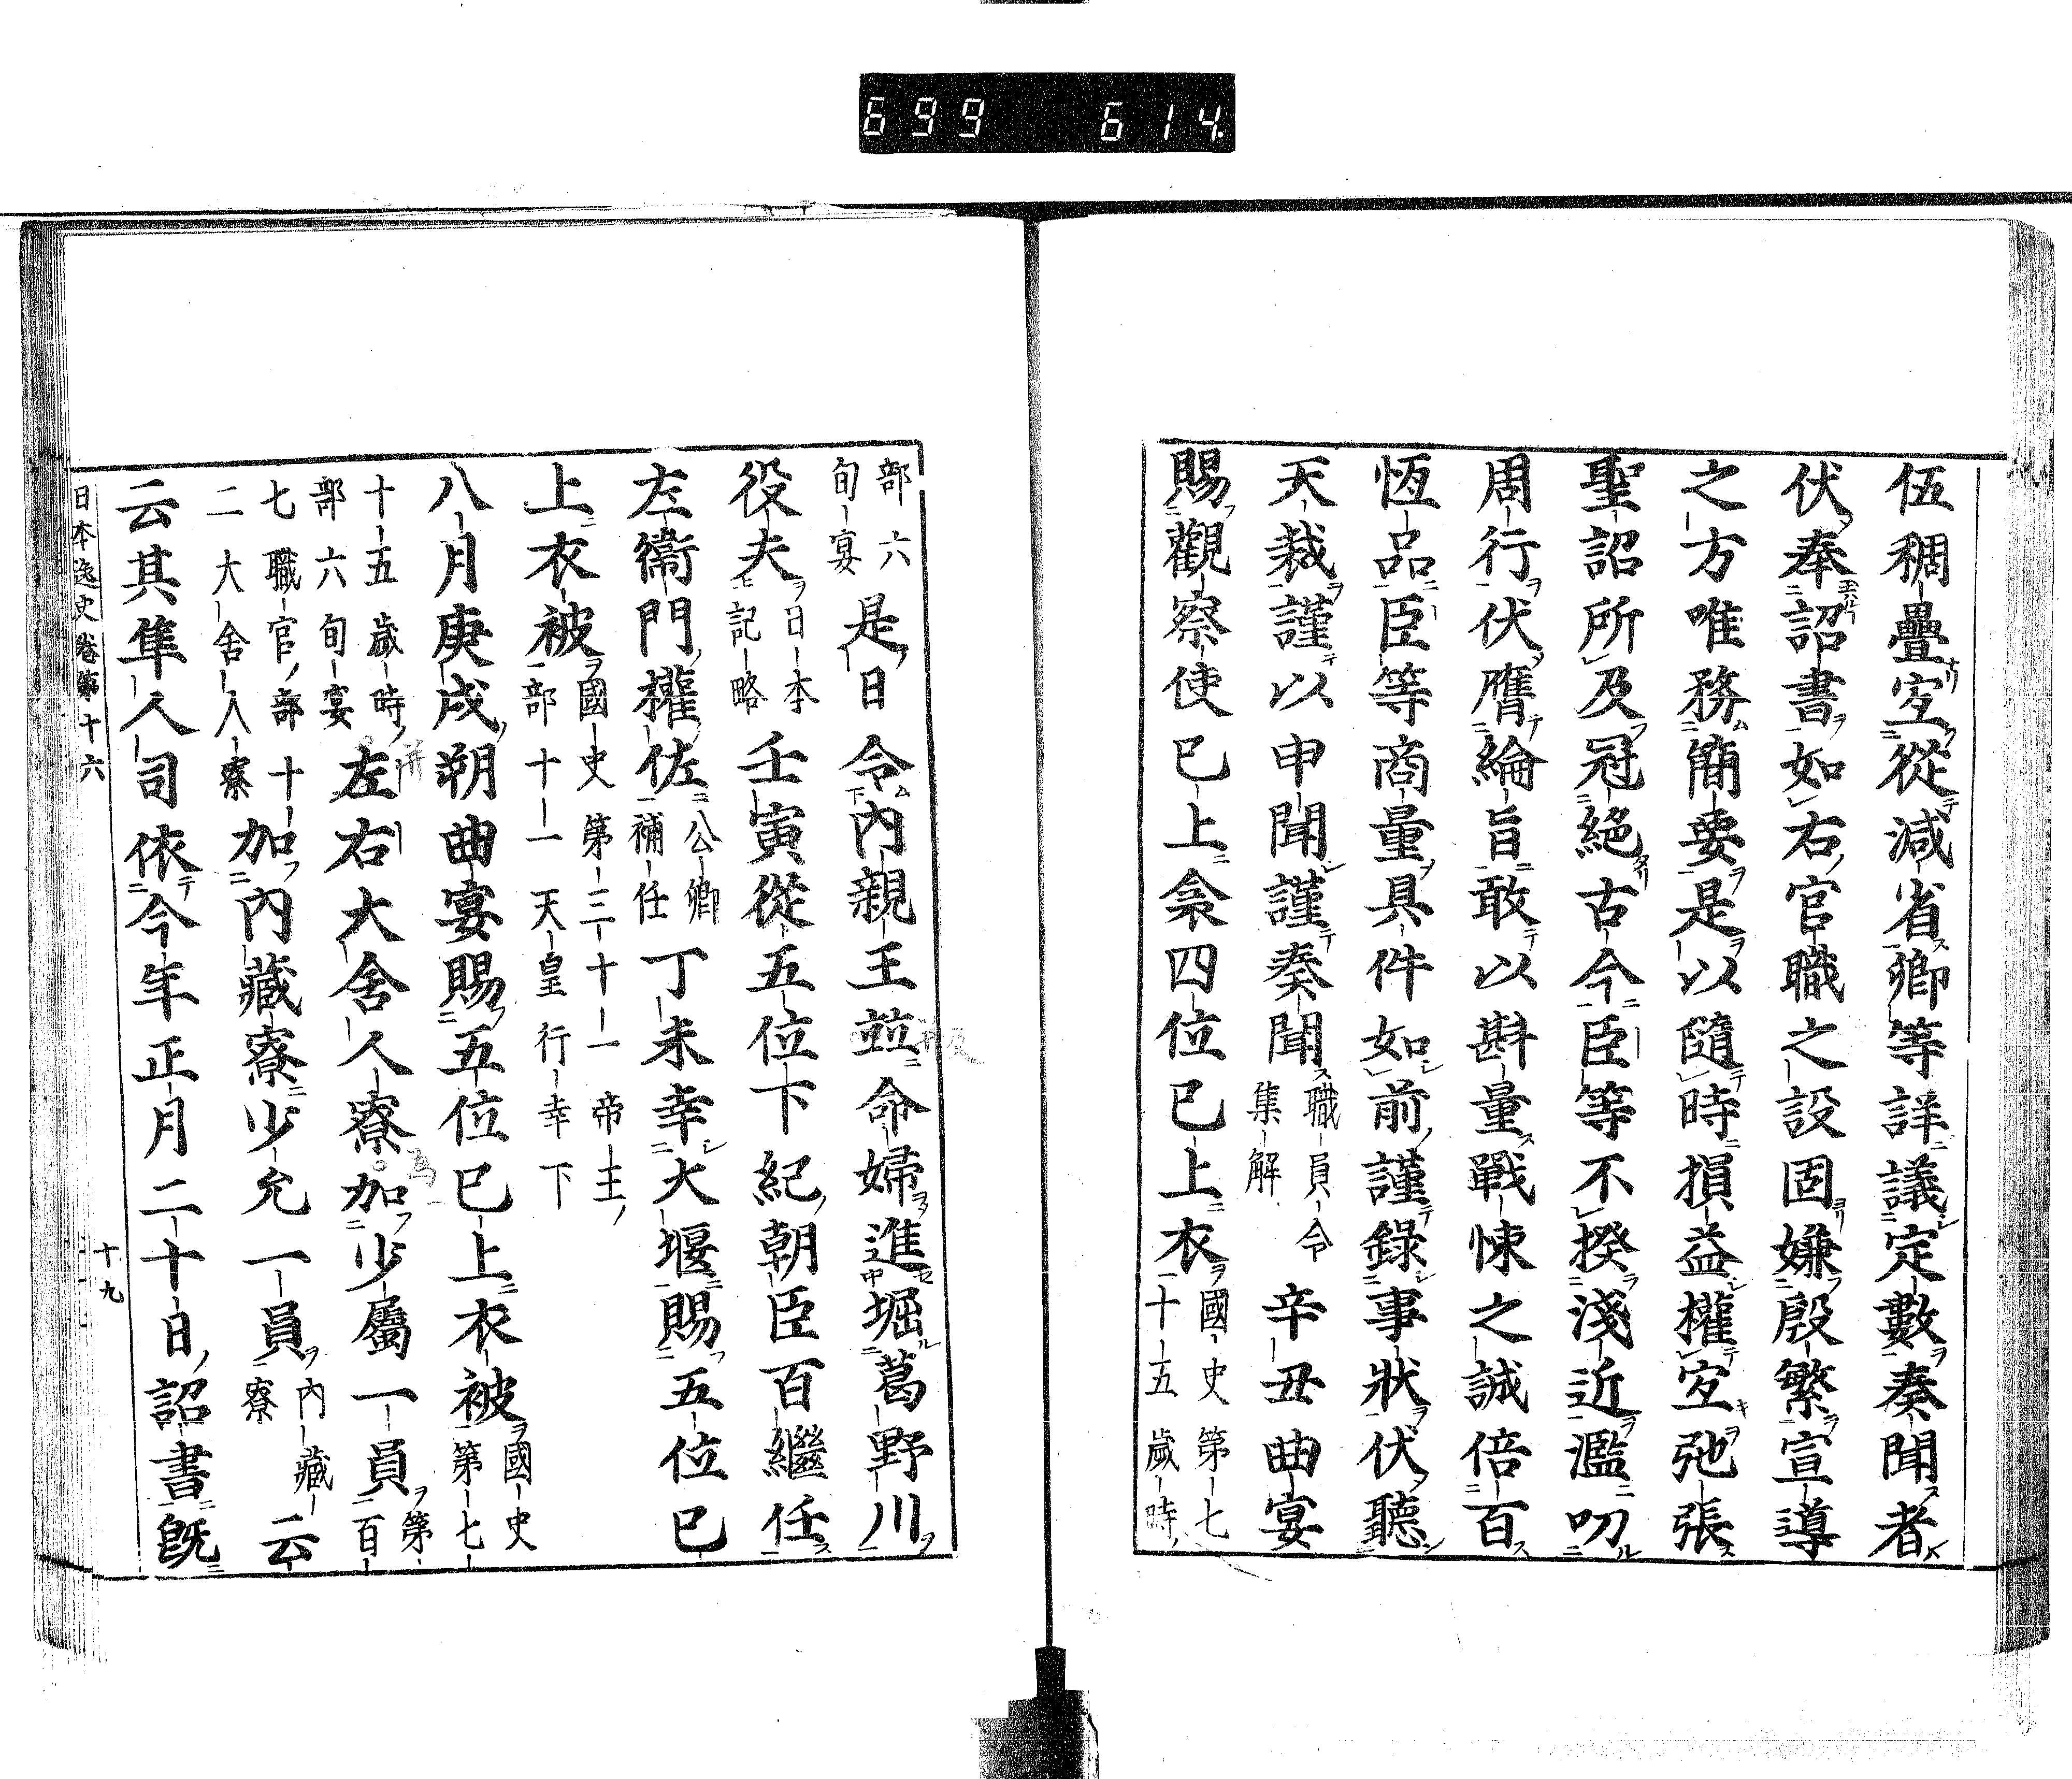 699 614
伍稠疊宜從減省卿等詳議定數奏聞者
伏奉詔書如右官職之設固嫌殷繁宣導
之方唯務簡要是以隨時損益權宜弛張
聖詔所及冠絕古今臣等不揆淺近濫叨
周行伏膺綸旨敢以斟量戰悚之誠倍百
恆品臣等商量具件如前謹錄事狀伏聽
天裁謹以申聞謹奏聞職員令
集解辛丑曲宴
賜觀察使已上衾四位已上衣國史第七
十五歲時
部六
旬宴是日令內親王竝命婦進堀葛野川
役夫日本
記略壬寅從五位下紀朝臣百繼任
左衞門權佐公卿
補任丁未幸大堰賜五位已
上衣被國史第三十一帝王
部十一天皇行幸下
八月庚戌朔曲宴賜五位已上衣被國史
第七
十五歲時
部六旬宴左右大舍人寮加少屬一員第
百
七職官部十
二大舍人寮加內藏寮少允一員內藏
寮云
云其隼人司依今年正月二十日詔書旣
日本逸史卷第十六
十九